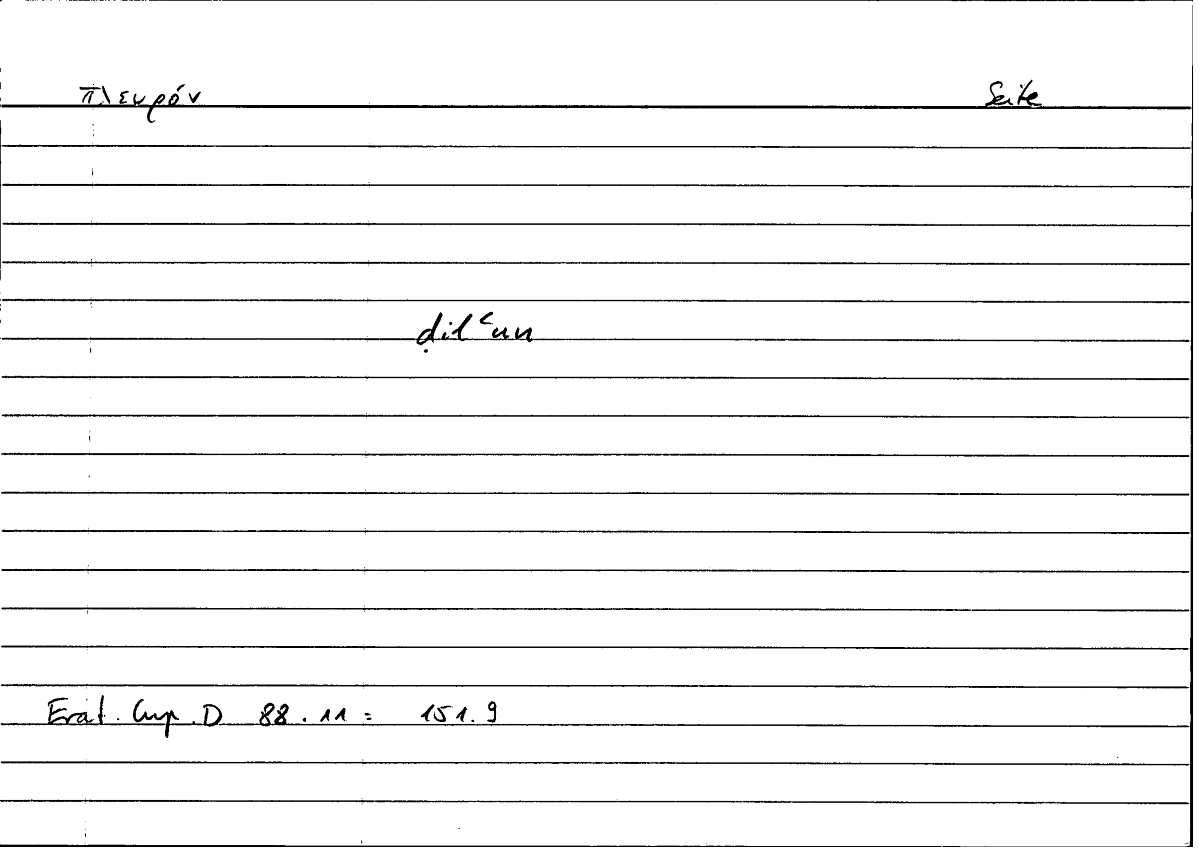 πλευρόν Seite
ḍilʿun
Erat. Cup. D 88.11 = 151.9